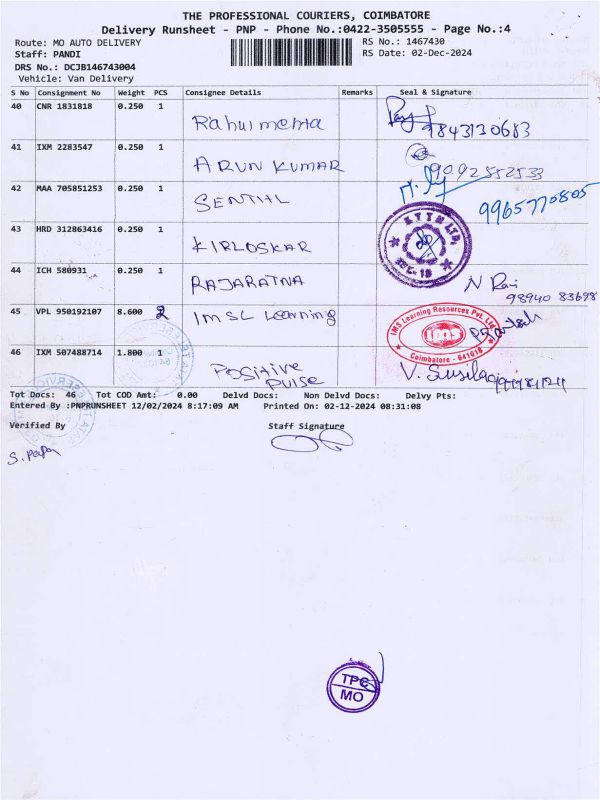 THE PROFESSIONAL COURIERS, COIMBATORE
Delivery Runsheet - PNP - Phone No.:0422-3505555 - Page No.:4
Route: MO AUTO DELIVERY RS No.: 1467430
Staff: PANDI RS Date: 02-Dec-2024
DRS No.: DCJB146743004
Vehicle: Van Delivery
S No Consignment No Weight PCS Consignee Details Remarks Seal & Signature
40 CNR 1831818 0.250 1 Rahul mehta 9843130683
41 IXM 2283547 0.250 1 ARUN KUMAR 9092552533
42 MAA 705851253 0.250 1 SENTHIL 9965770805
43 HRD 312863416 0.250 1 KIRLOSKAR
44 ICH 580931 0.250 1 RAJARATNA N Ravi
98940 83698
45 VPL 950192107 8.600 2 IMSL Learning IMS Learning Resources Pvt. Ltd. IMS Coimbatore - 641018
46 IXM 507488714 1.800 1 POSITIVE PULSE V. Susila
Tot Docs: 46 Tot COD Amt: 0.00 Delvd Docs: Non Delvd Docs: Delvy Pts:
Entered By :PNPRUNSHEET 12/02/2024 8:17:09 AM Printed On: 02-12-2024 08:31:08
Verified By Staff Signature
S. Papa
TPC
MO